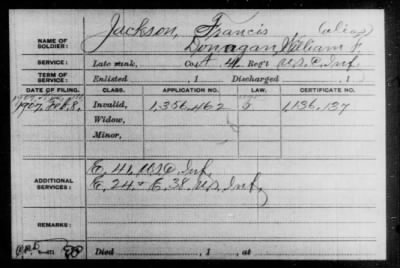 NAME OF SOLDIER: Jackson, Francis (alias)
Donagan, William F.
SERVICE: Late rank, Co. A 41 Reg't U.S.C. Inf.
TERM OF SERVICE: Enlisted , 1 Discharged , 1
DATE OF FILING. CLASS. APPLICATION NO. LAW. CERTIFICATE NO.
1907, Feb. 8. Invalid, 1,356,462 G 1,136,137
Widow,
Minor,
ADDITIONAL SERVICES: E. 41, U.S.C. Inf.
E. 24 & E. 38. U.S. Inf.
REMARKS:
Died , 1 , at